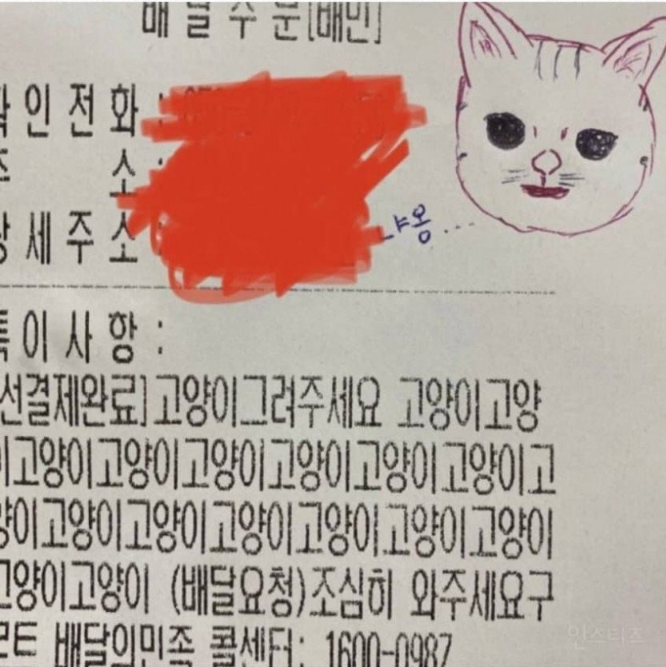 배 달 주 문[배민]
확 인 전 화 :
주 소 :
상 세 주 소
냐옹...
특 이 사 항 :
[선결제완료]고양이그려주세요 고양이고양
이고양이고양이고양이고양이고양이고양이고
양이고양이고양이고양이고양이고양이고양이
고양이고양이 (배달요청)조심히 와주세요구
배달의민족 콜센터: 1600-0987
인스티즈